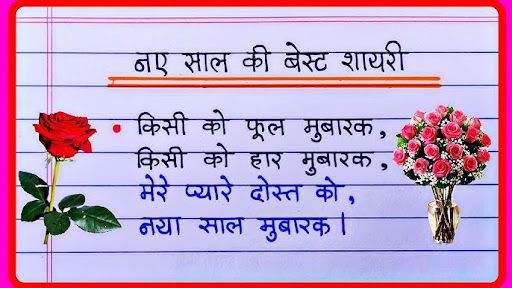 नए साल की बेस्ट शायरी
किसी को फूल मुबारक,
किसी को हार मुबारक,
मेरे प्यारे दोस्त को,
नया साल मुबारक।